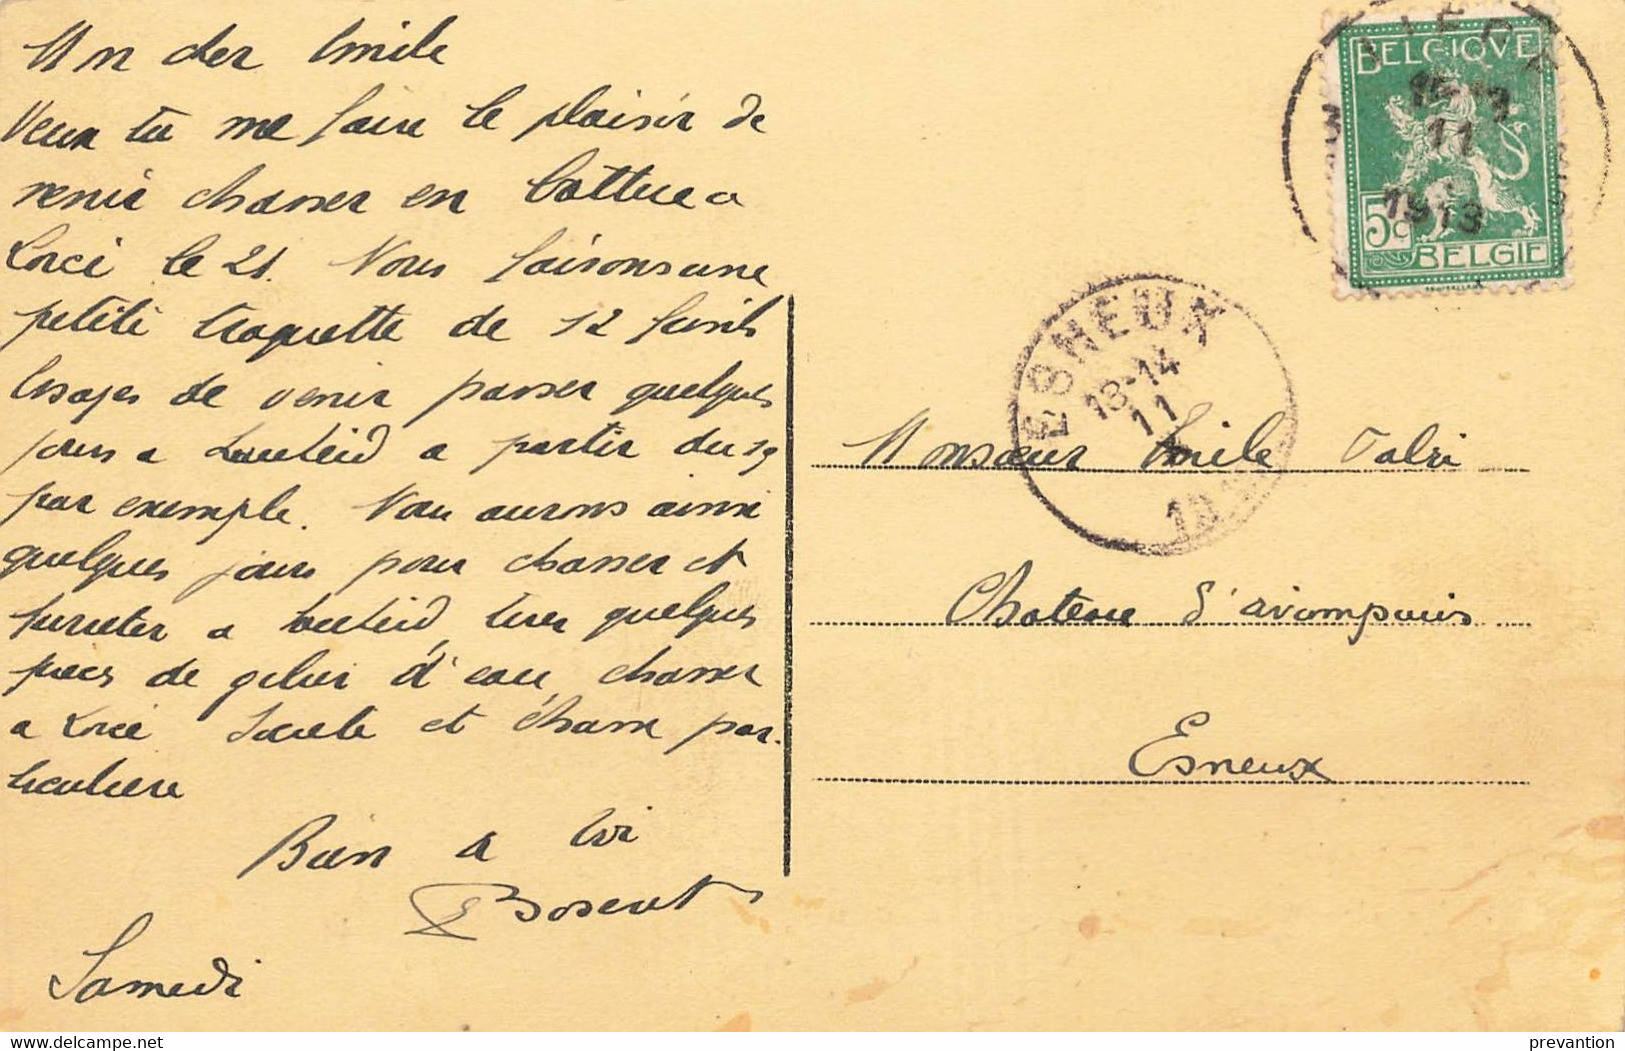 Mon cher Emile
Veux tu me faire le plaisir de
venir chasser en battue a
Lorcé le 21. Nous faisons une
petite traquette de 12 fusils
Essayes de venir passer quelques
jours a Hauteid a partir du 19
par exemple. Nous aurons ainsi
quelques jours pour chasser et
fureter a Hauteid, tirer quelques
pieces de gibier d'eau, chasser
a Lorcé Société et Chasse par-
ticuliere
Bien a toi
Samedi
BELGIQUE
5c
BELGIE
LIEGE
11
1913
ESNEUX
13-14
11
Monsieur Emile
Chateau d'avionpuits
Esneux
prevantion